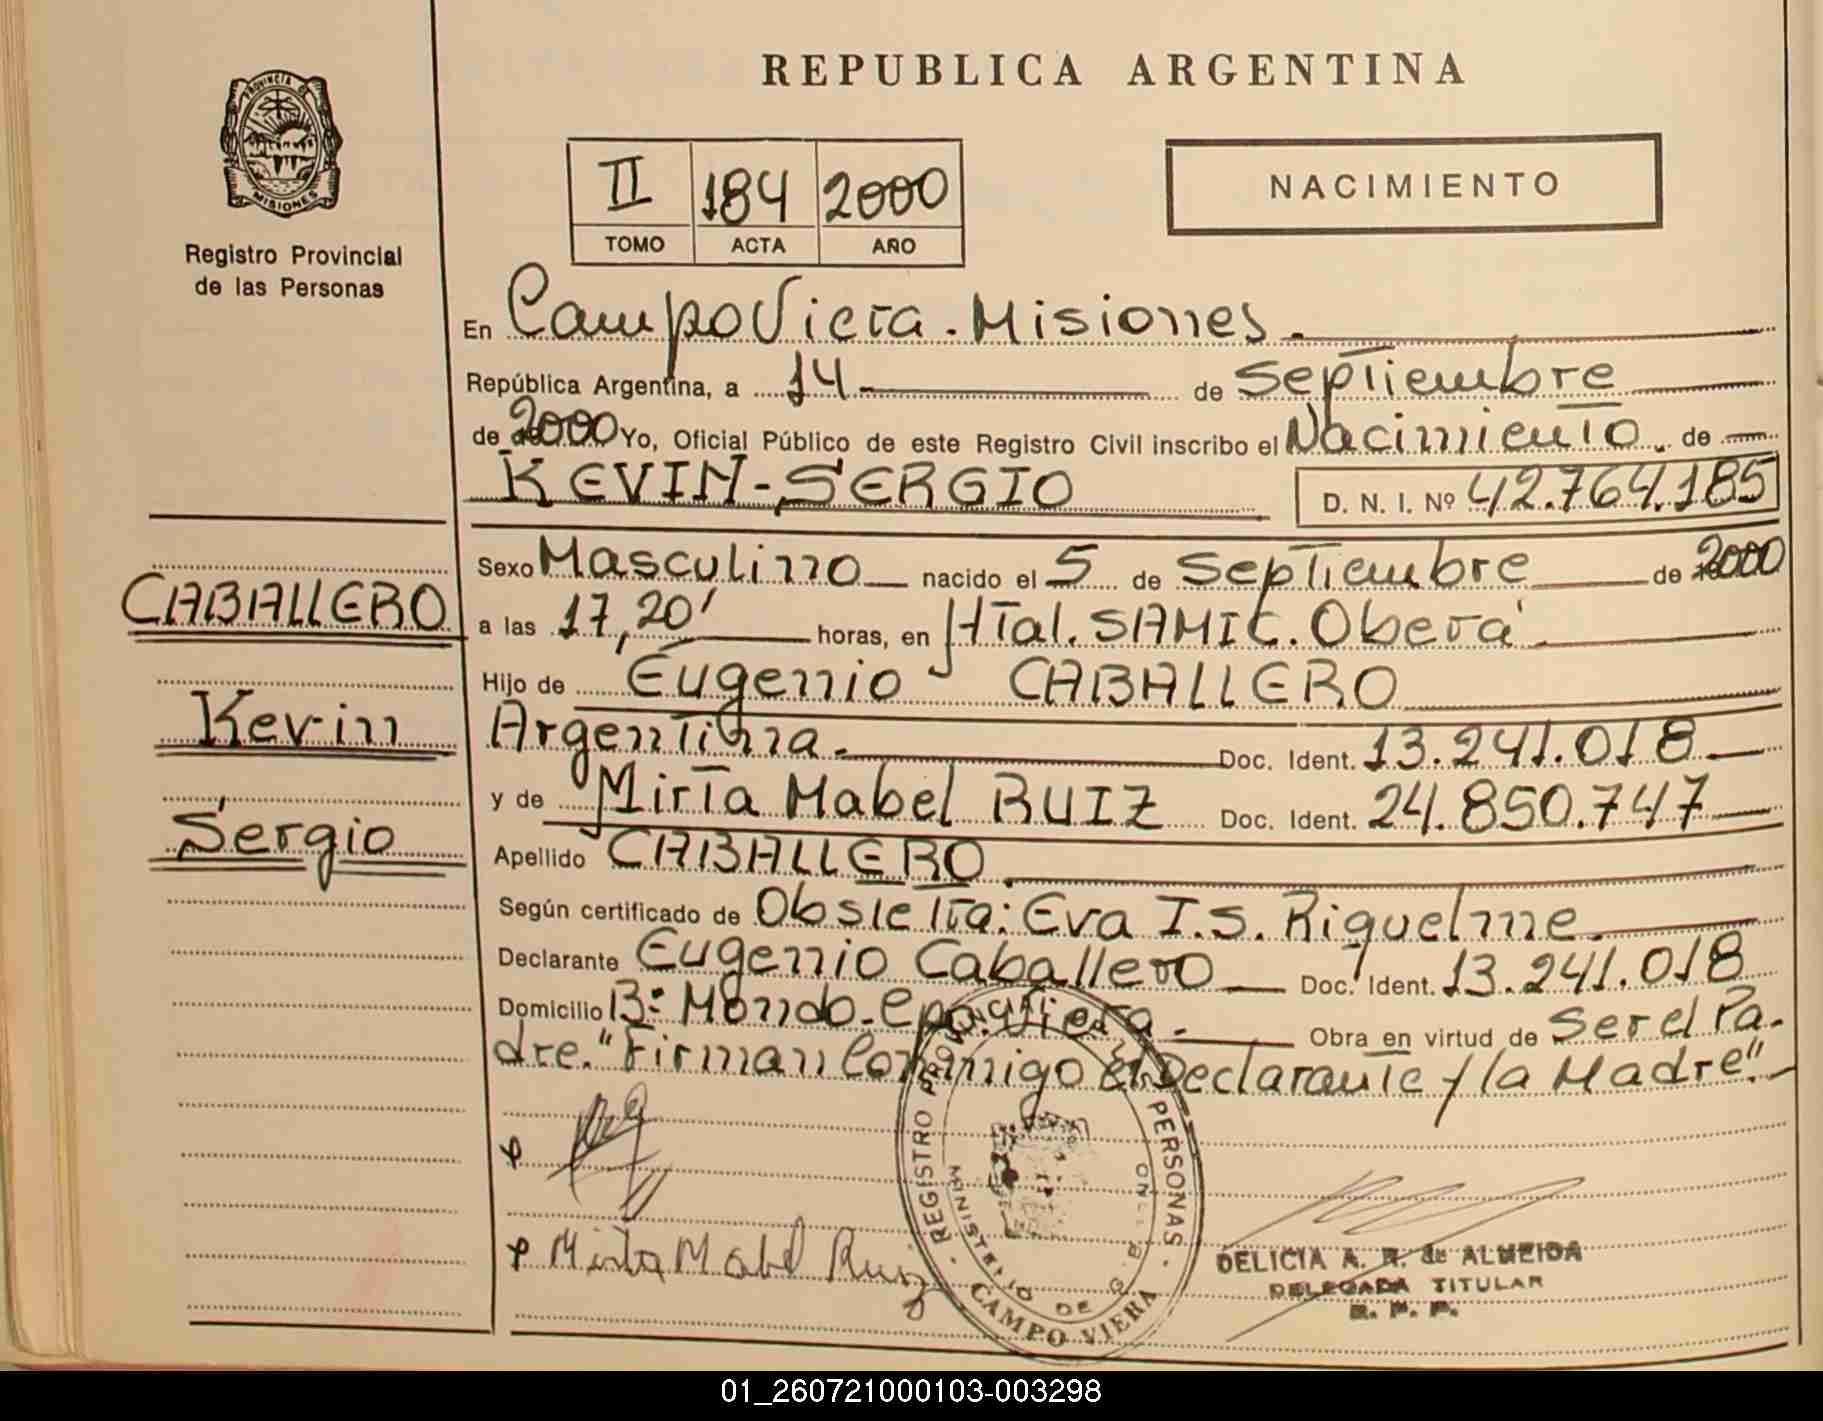 REPUBLICA ARGENTINA
PROVINCIA DE
MISIONES
Registro Provincial
de las Personas
II 184 2000
TOMO ACTA AÑO
NACIMIENTO
En Campo Viera. Misiones.
República Argentina, a 14 de Septiembre
de 2000 Yo, Oficial Público de este Registro Civil inscribo el Nacimiento de
KEVIN-SERGIO D. N. I. Nº 42.764.185
CABALLERO
Kevin
Sergio
Sexo Masculino nacido el 5 de Septiembre de 2000
a las 17,20' horas, en HTal. SAMIC. Oberá
Hijo de Eugenio CABALLERO
Argentina. Doc. Ident. 13.241.018
y de Mirta Mabel RUIZ Doc. Ident. 24.850.747
Apellido CABALLERO.
Según certificado de Obstetra: Eva I.S. Riquelme.
Declarante Eugenio Caballero Doc. Ident. 13.241.018
Domicilio B: Mondo. Cpo. Viera. Obra en virtud de Ser el Pa-
dre. "Firman Conmigo El Declarante y la Madre".
Mirta Mabel Ruiz
REGISTRO PROVINCIAL DE LAS PERSONAS
MINISTERIO DE G.
CAMPO VIERA
DELICIA A. R. de ALMEIDA
DELEGADA TITULAR
R. P. P.
01_260721000103-003298